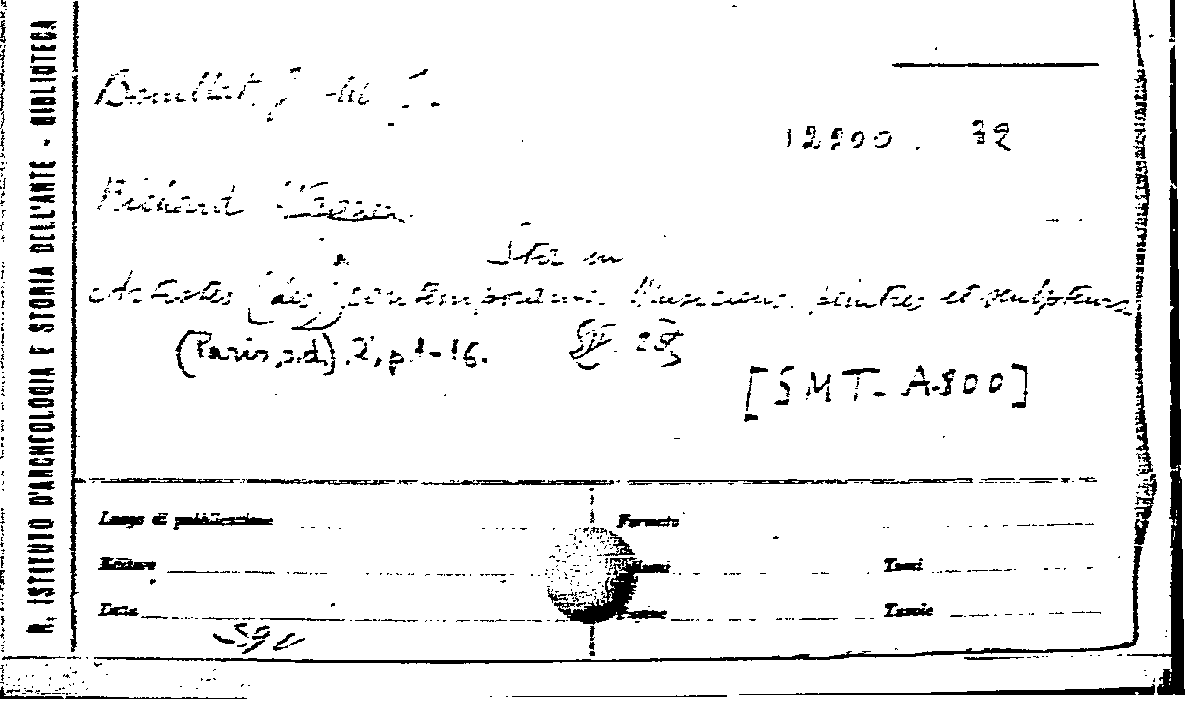 R. ISTITUTO D'ARCHEOLOGIA E STORIA DELL'ARTE - BIBLIOTECA
Bouillat, J. M. J.
12200. 32
Richard Wagner
Sta in
Artistes (des) contemporains. Musiciens, peintres et sculpteurs
(Paris, s.d.). 2, p. 1-16.
[SMT- A800]
Luogo di pubblicazione
Formato
Editore
Tomi
Data
Pagine
Tavole